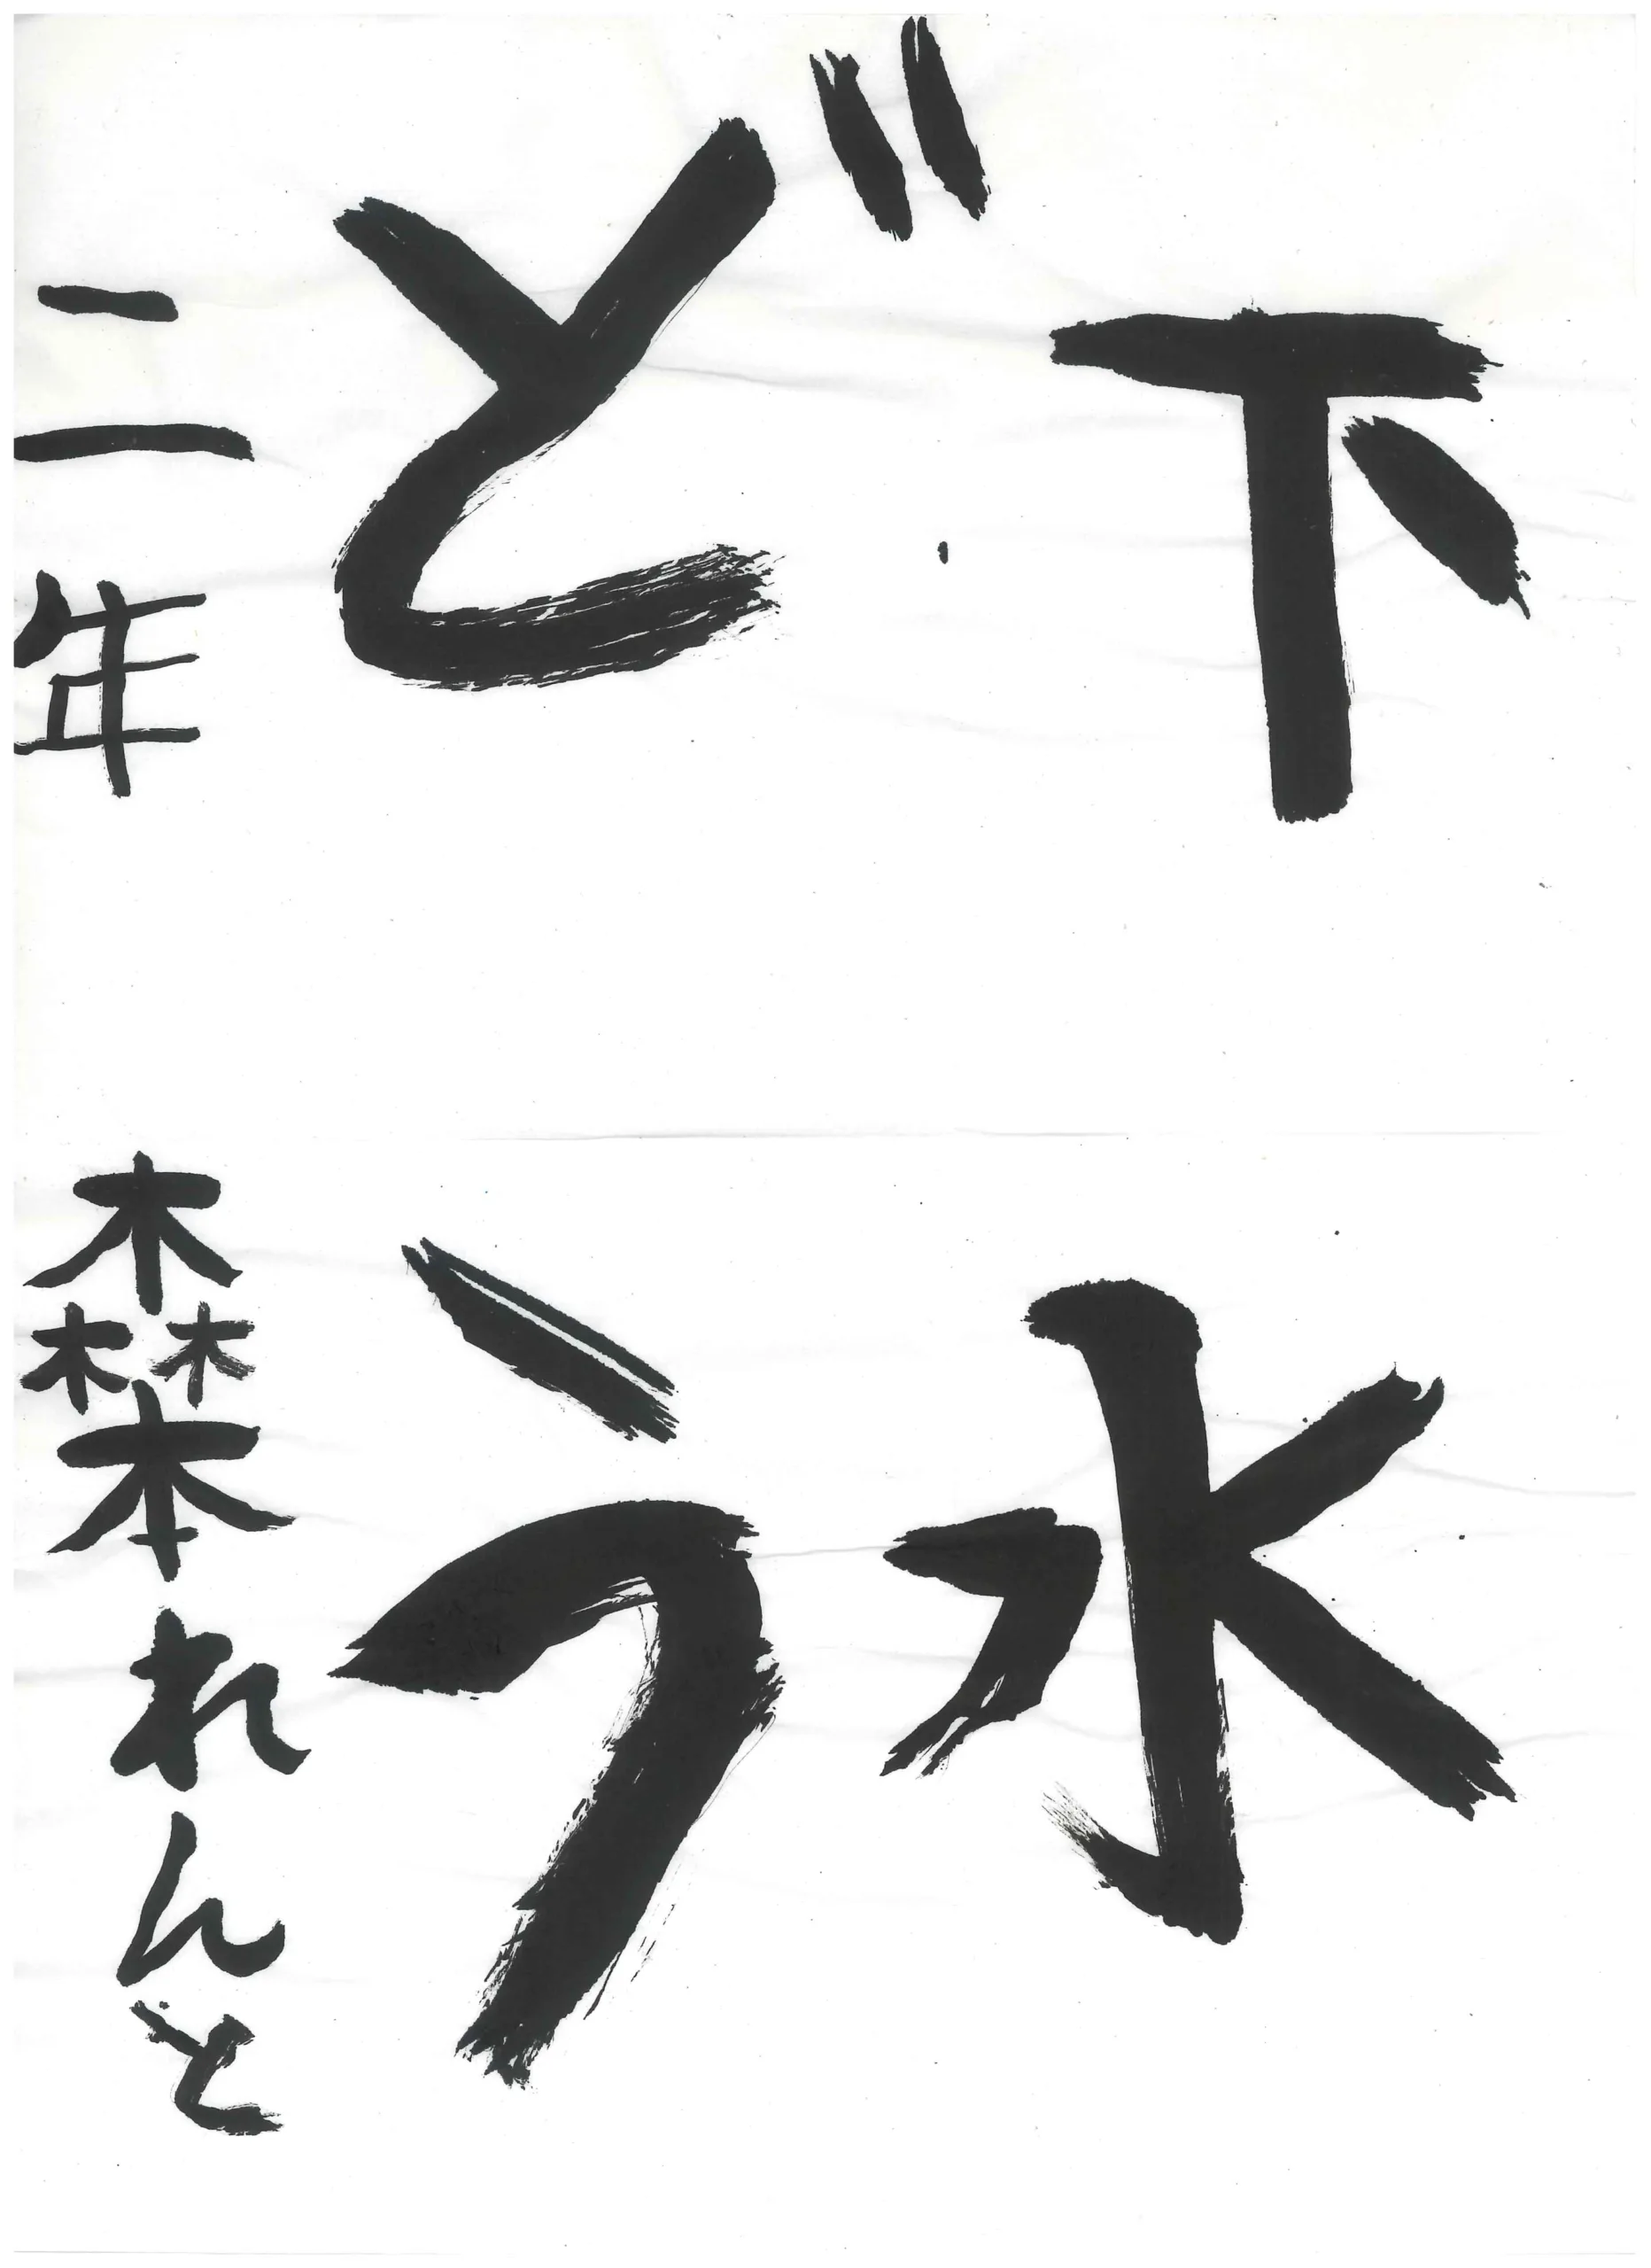 下水
どう
二年 森本れんと